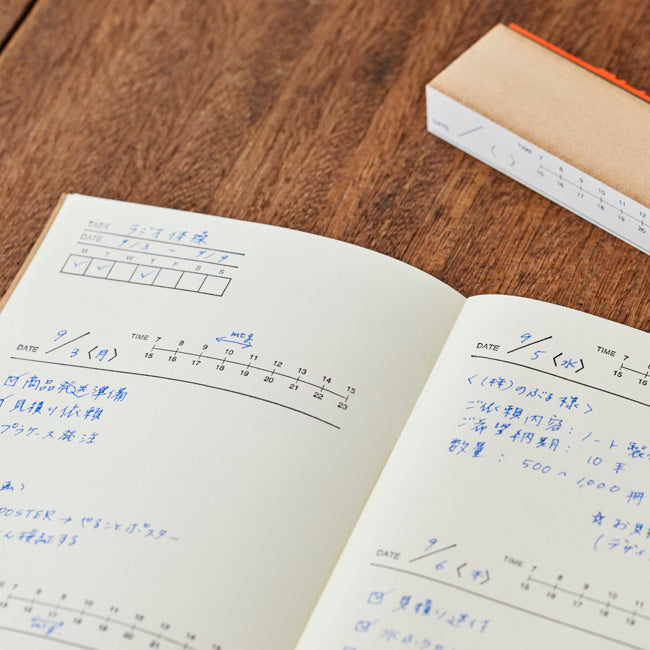 DATE / 〈 〉 TIME 7 8 9 10 11 12
15 16 17 18 19 20
TASK ラジオ体操
DATE 9/3 9/9
M T W T F S S
mtg
DATE 9/3〈月〉 TIME 7 8 9 10 11 12 13 14 15
15 16 17 18 19 20 21 22 23
商品発送準備
見積り依頼
プラケース発注
POSTER → やることポスター
検証する
7 8 9 10 11 12 13
15 16 17 18 19 20 21
mtg
DATE 9/5〈水〉 TIME 7 8
15 16
〈(株)のぶる様〉
ご依頼内容：ノート製
ご希望納期：10末
数量：500〜1,000冊
☆お見積
(デザイ
DATE 9/6〈木〉 TIME 7 8 9 10
15 16 17 18
見積り送付